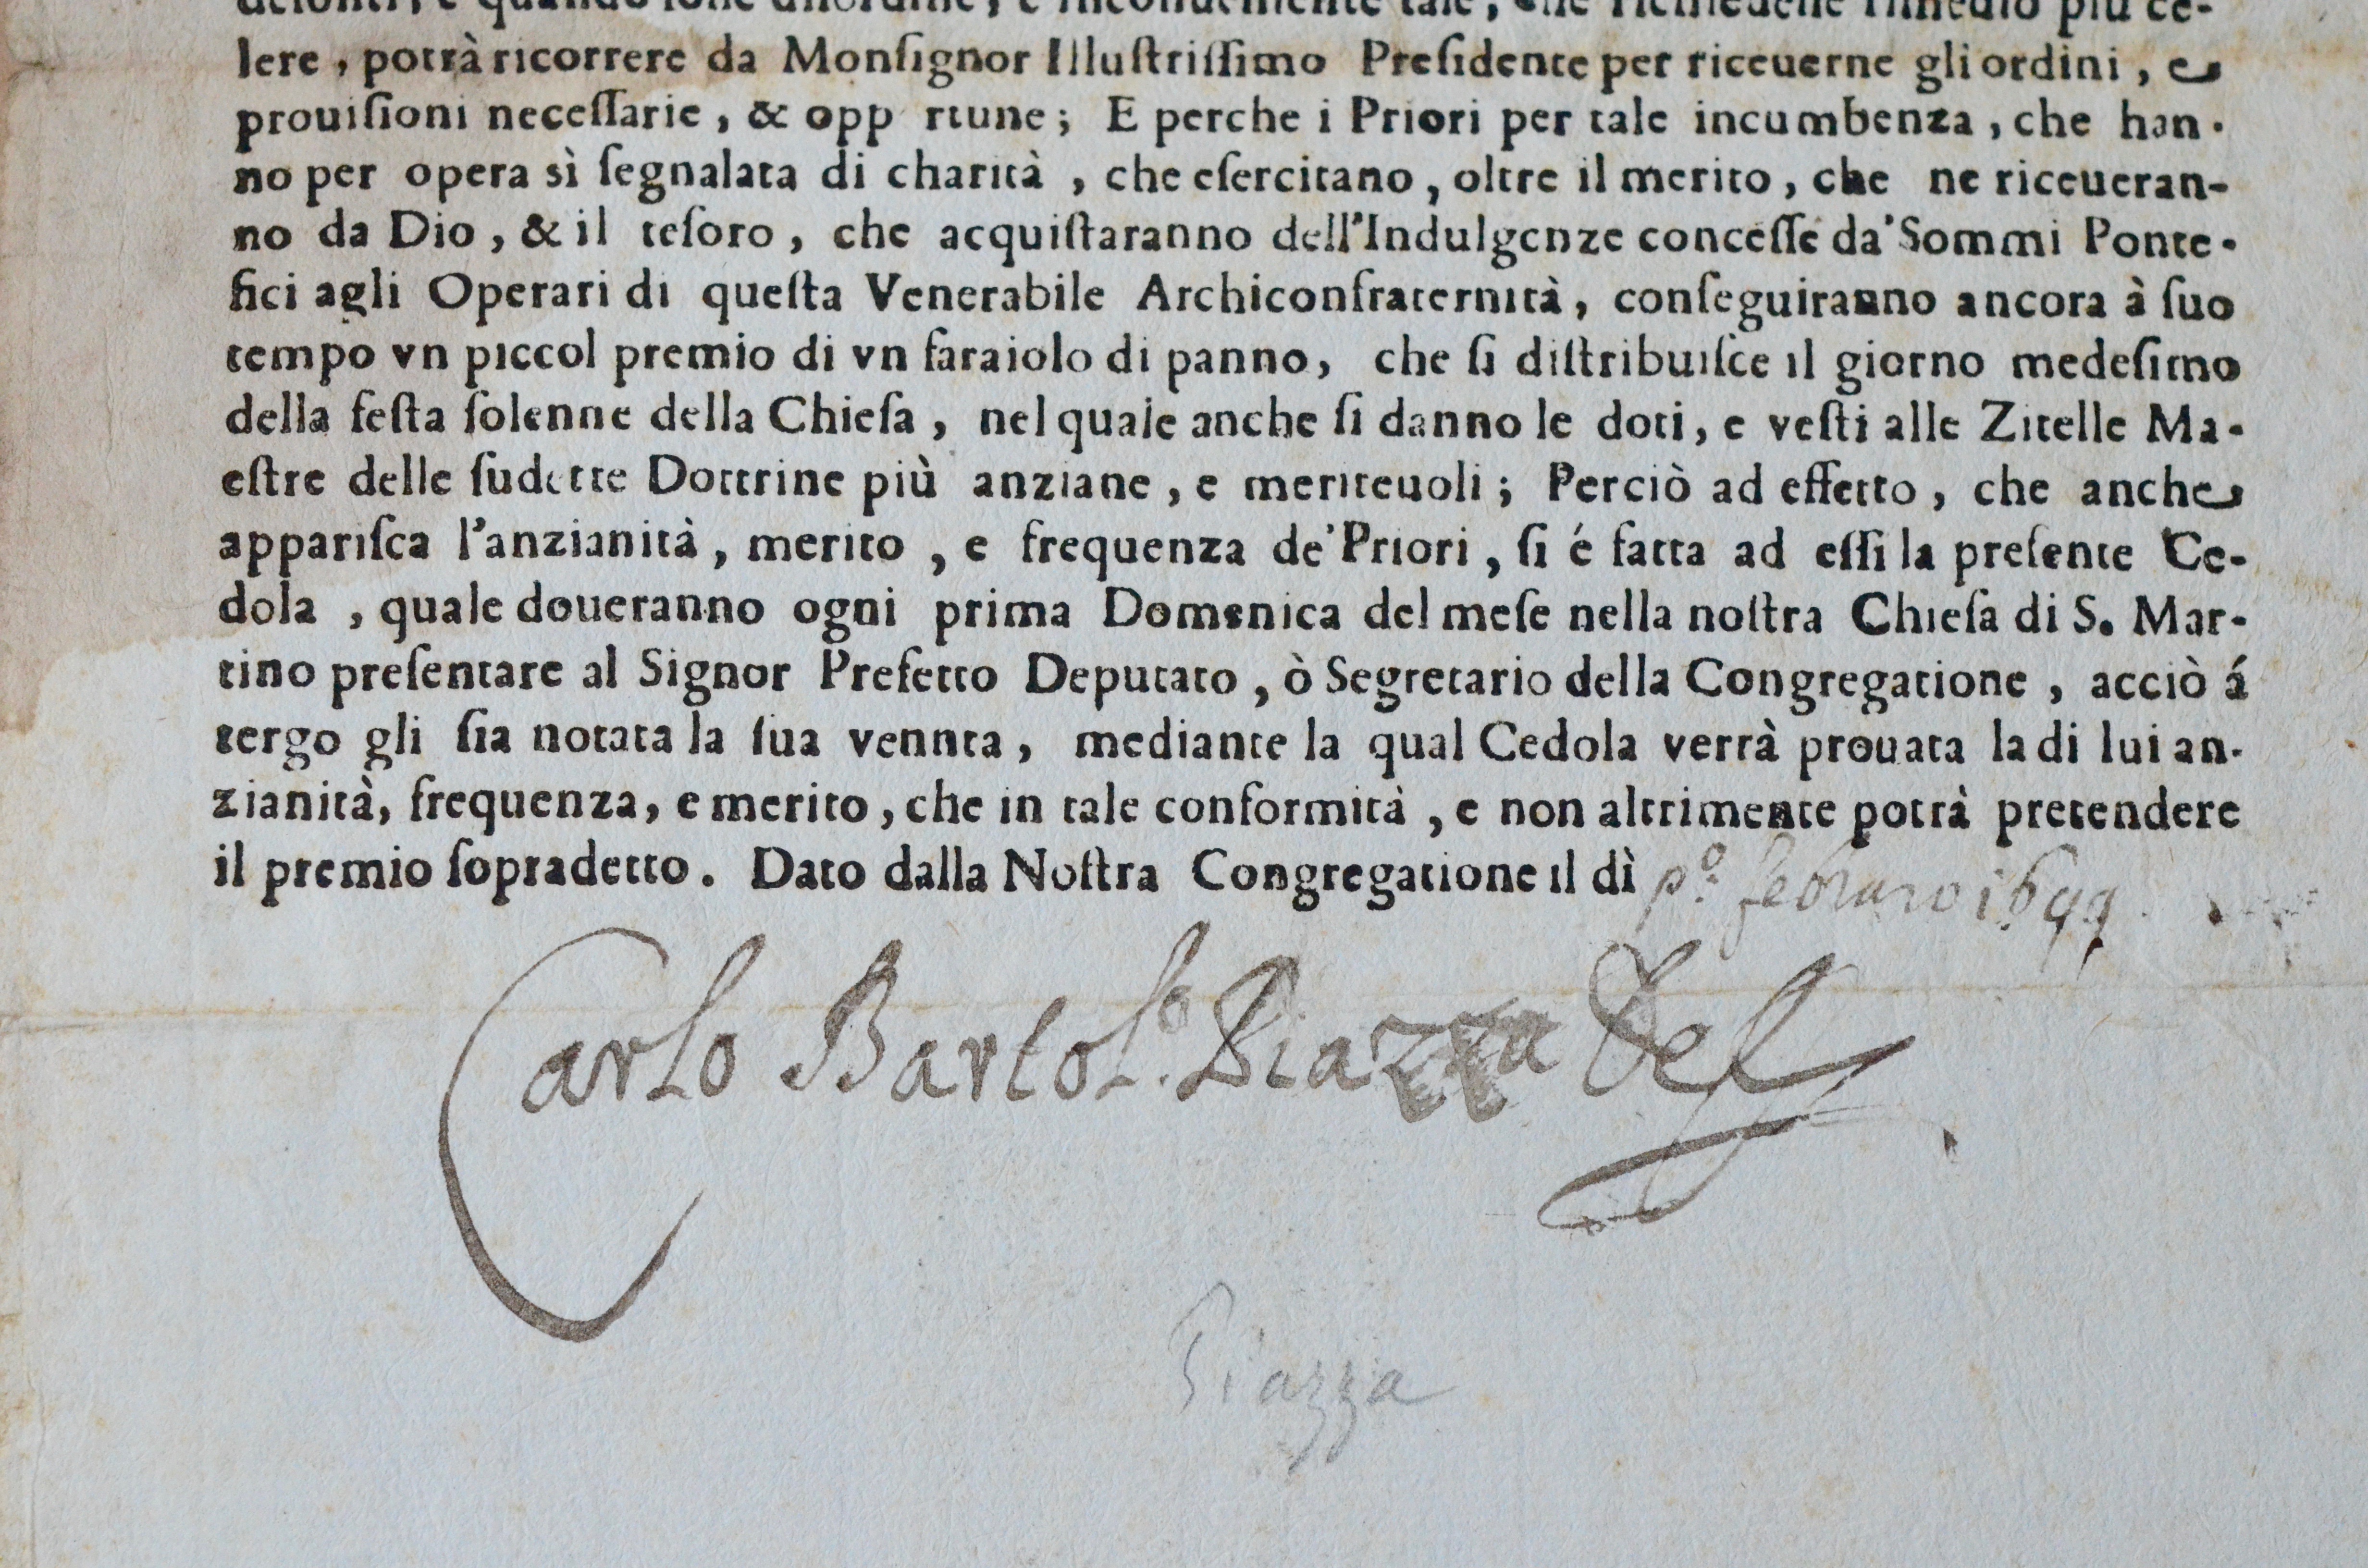 lere, potrà ricorrere da Monſignor Illuſtriſſimo Preſidente per riceuerne gli ordini, e
prouiſioni neceſſarie, & opp rtune; E perche i Priori per tale incumbenza, che han-
no per opera sì ſegnalata di charità, che eſercitano, oltre il merito, che ne riceueran-
no da Dio, & il teſoro, che acquiſtaranno dell'Indulgenze conceſſe da' Sommi Ponte-
fici agli Operari di queſta Venerabile Archiconfraternità, conſeguiranno ancora à ſuo
tempo vn piccol premio di vn faraiolo di panno, che ſi diſtribuiſce il giorno medeſimo
della feſta ſolenne della Chieſa, nel quale anche ſi danno le doti, e veſti alle Zitelle Ma-
eſtre delle ſudette Dottrine più anziane, e meriteuoli; Perciò ad effetto, che anche
appariſca l'anzianità, merito, e frequenza de' Priori, ſi é fatta ad eſſi la preſente Ce-
dola, quale doueranno ogni prima Domenica del meſe nella noſtra Chieſa di S. Mar-
tino preſentare al Signor Prefetto Deputato, ò Segretario della Congregatione, acciò á
tergo gli ſia notata la ſua vennta, mediante la qual Cedola verrà prouata la di lui an-
zianità, frequenza, e merito, che in tale conformità, e non altrimente potrà pretendere
il premio ſopradetto. Dato dalla Noſtra Congregatione il dì p.º febraro 1699.
Carlo Bartol.º Piazza
Piazza